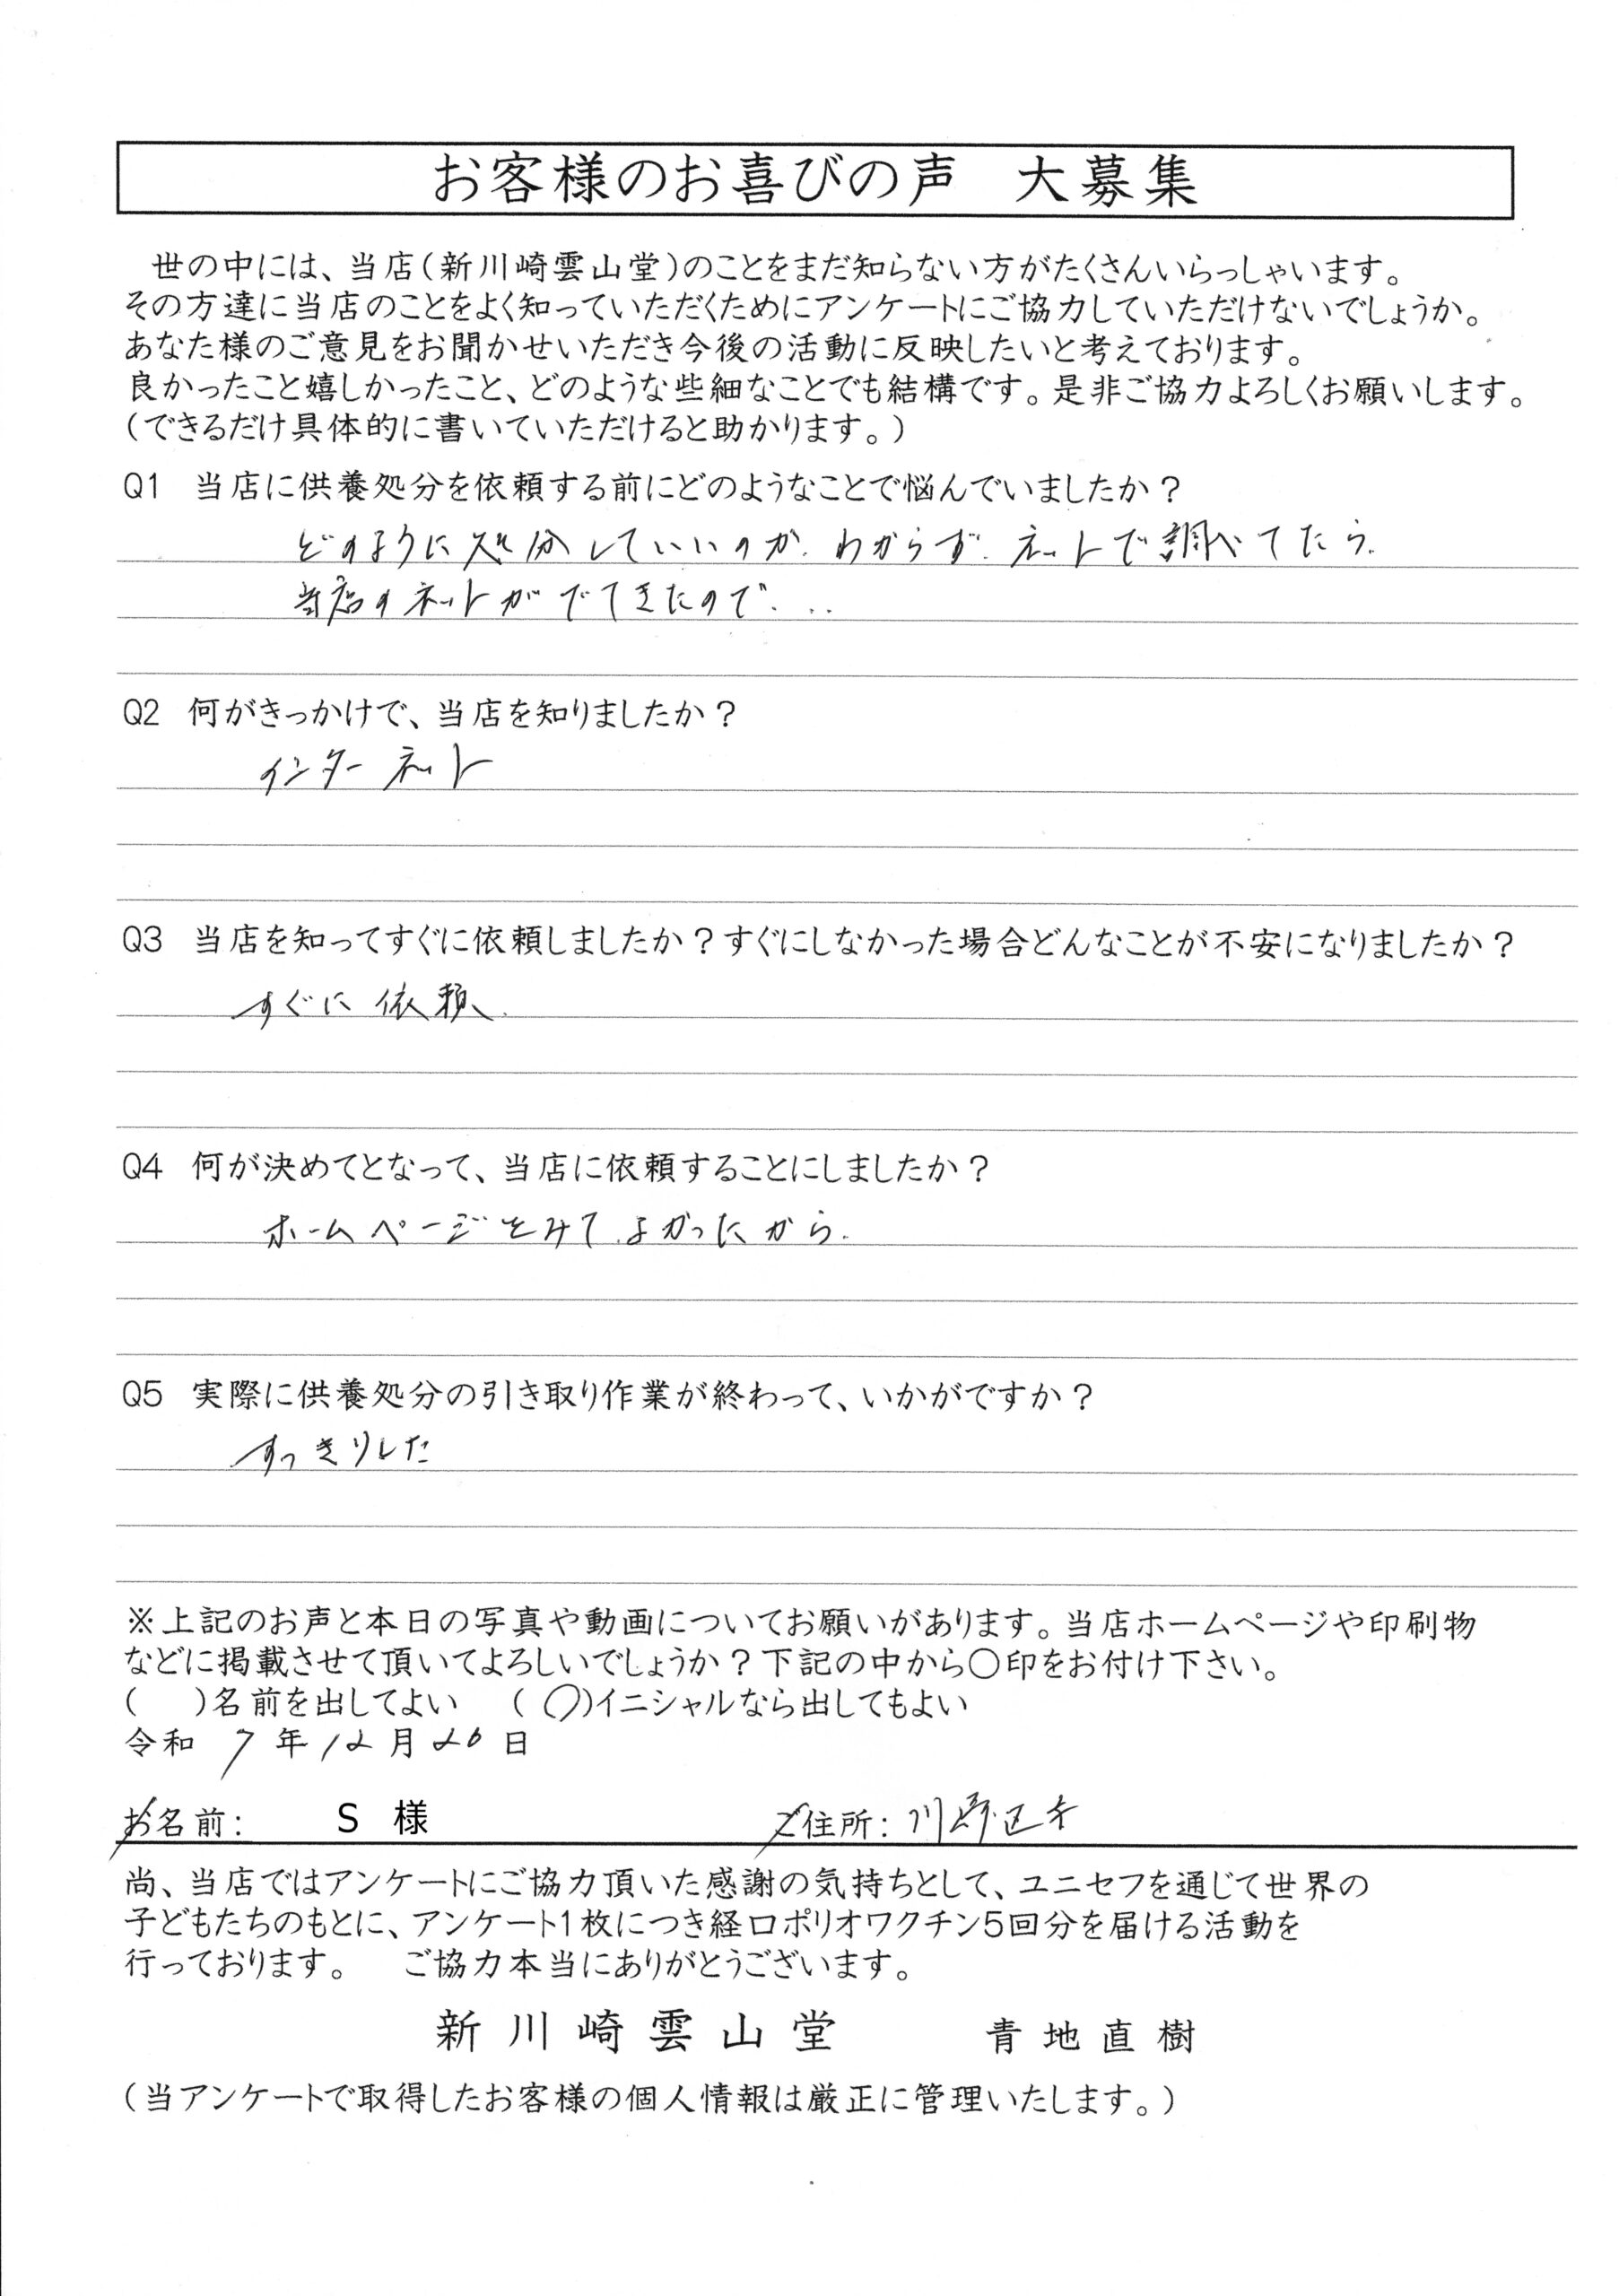 お客様のお喜びの声　大募集
世の中には、当店(新川崎雲山堂)のことをまだ知らない方がたくさんいらっしゃいます。
その方達に当店のことをよく知っていただくためにアンケートにご協力していただけないでしょうか。
あなた様のご意見をお聞かせいただき今後の活動に反映したいと考えております。
良かったこと嬉しかったこと、どのような些細なことでも結構です。是非ご協力よろしくお願いします。
(できるだけ具体的に書いていただけると助かります。)
Q1　当店に供養処分を依頼する前にどのようなことで悩んでいましたか？
どのように処分していいのか、わからず、ネットで調べてたら、
当店のネットがでてきたので...
Q2　何がきっかけで、当店を知りましたか？
インターネット
Q3　当店を知ってすぐに依頼しましたか？すぐにしなかった場合どんなことが不安になりましたか？
すぐに依頼、
Q4　何が決めてとなって、当店に依頼することにしましたか？
ホームページをみてよかったから、
Q5　実際に供養処分の引き取り作業が終わって、いかがですか？
すっきりした
※上記のお声と本日の写真や動画についてお願いがあります。当店ホームページや印刷物
などに掲載させて頂いてよろしいでしょうか？下記の中から〇印をお付け下さい。
(　　)名前を出してよい　(〇)イニシャルなら出してもよい
令和 7 年 12 月 20 日
お名前:　S 様　ご住所: 川崎
尚、当店ではアンケートにご協力頂いた感謝の気持ちとして、ユニセフを通じて世界の
子どもたちのもとに、アンケート1枚につき経口ポリオワクチン5回分を届ける活動を
行っております。　ご協力本当にありがとうございます。
新川崎雲山堂　青地直樹
(当アンケートで取得したお客様の個人情報は厳正に管理いたします。)